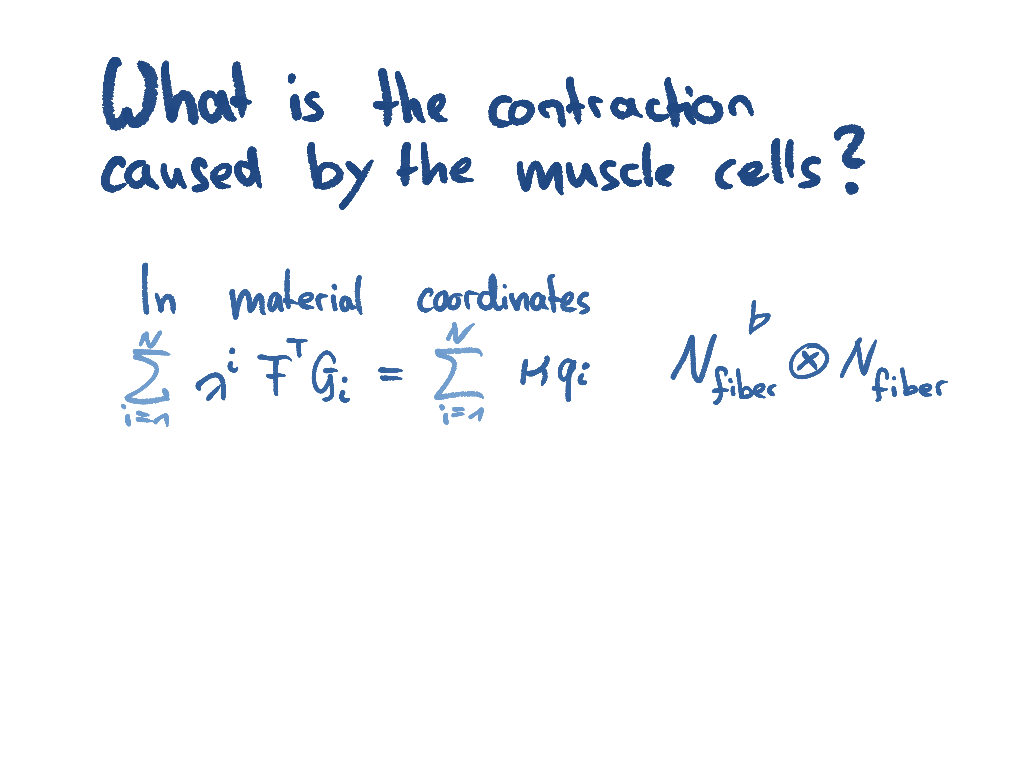 What is the contraction
caused by the muscle cells?
In material coordinates
∑_{i=1}^{N} λ^i F^T G_i = ∑_{i=1}^{N} μ q_i   N^b_fiber ⊗ N_fiber